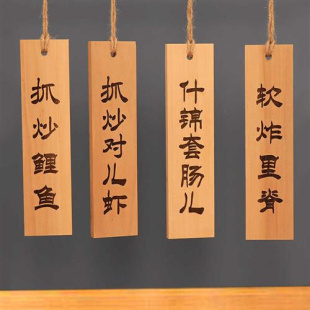 抓炒鲤鱼
抓炒对儿虾
什锦套肠儿
软炸里脊